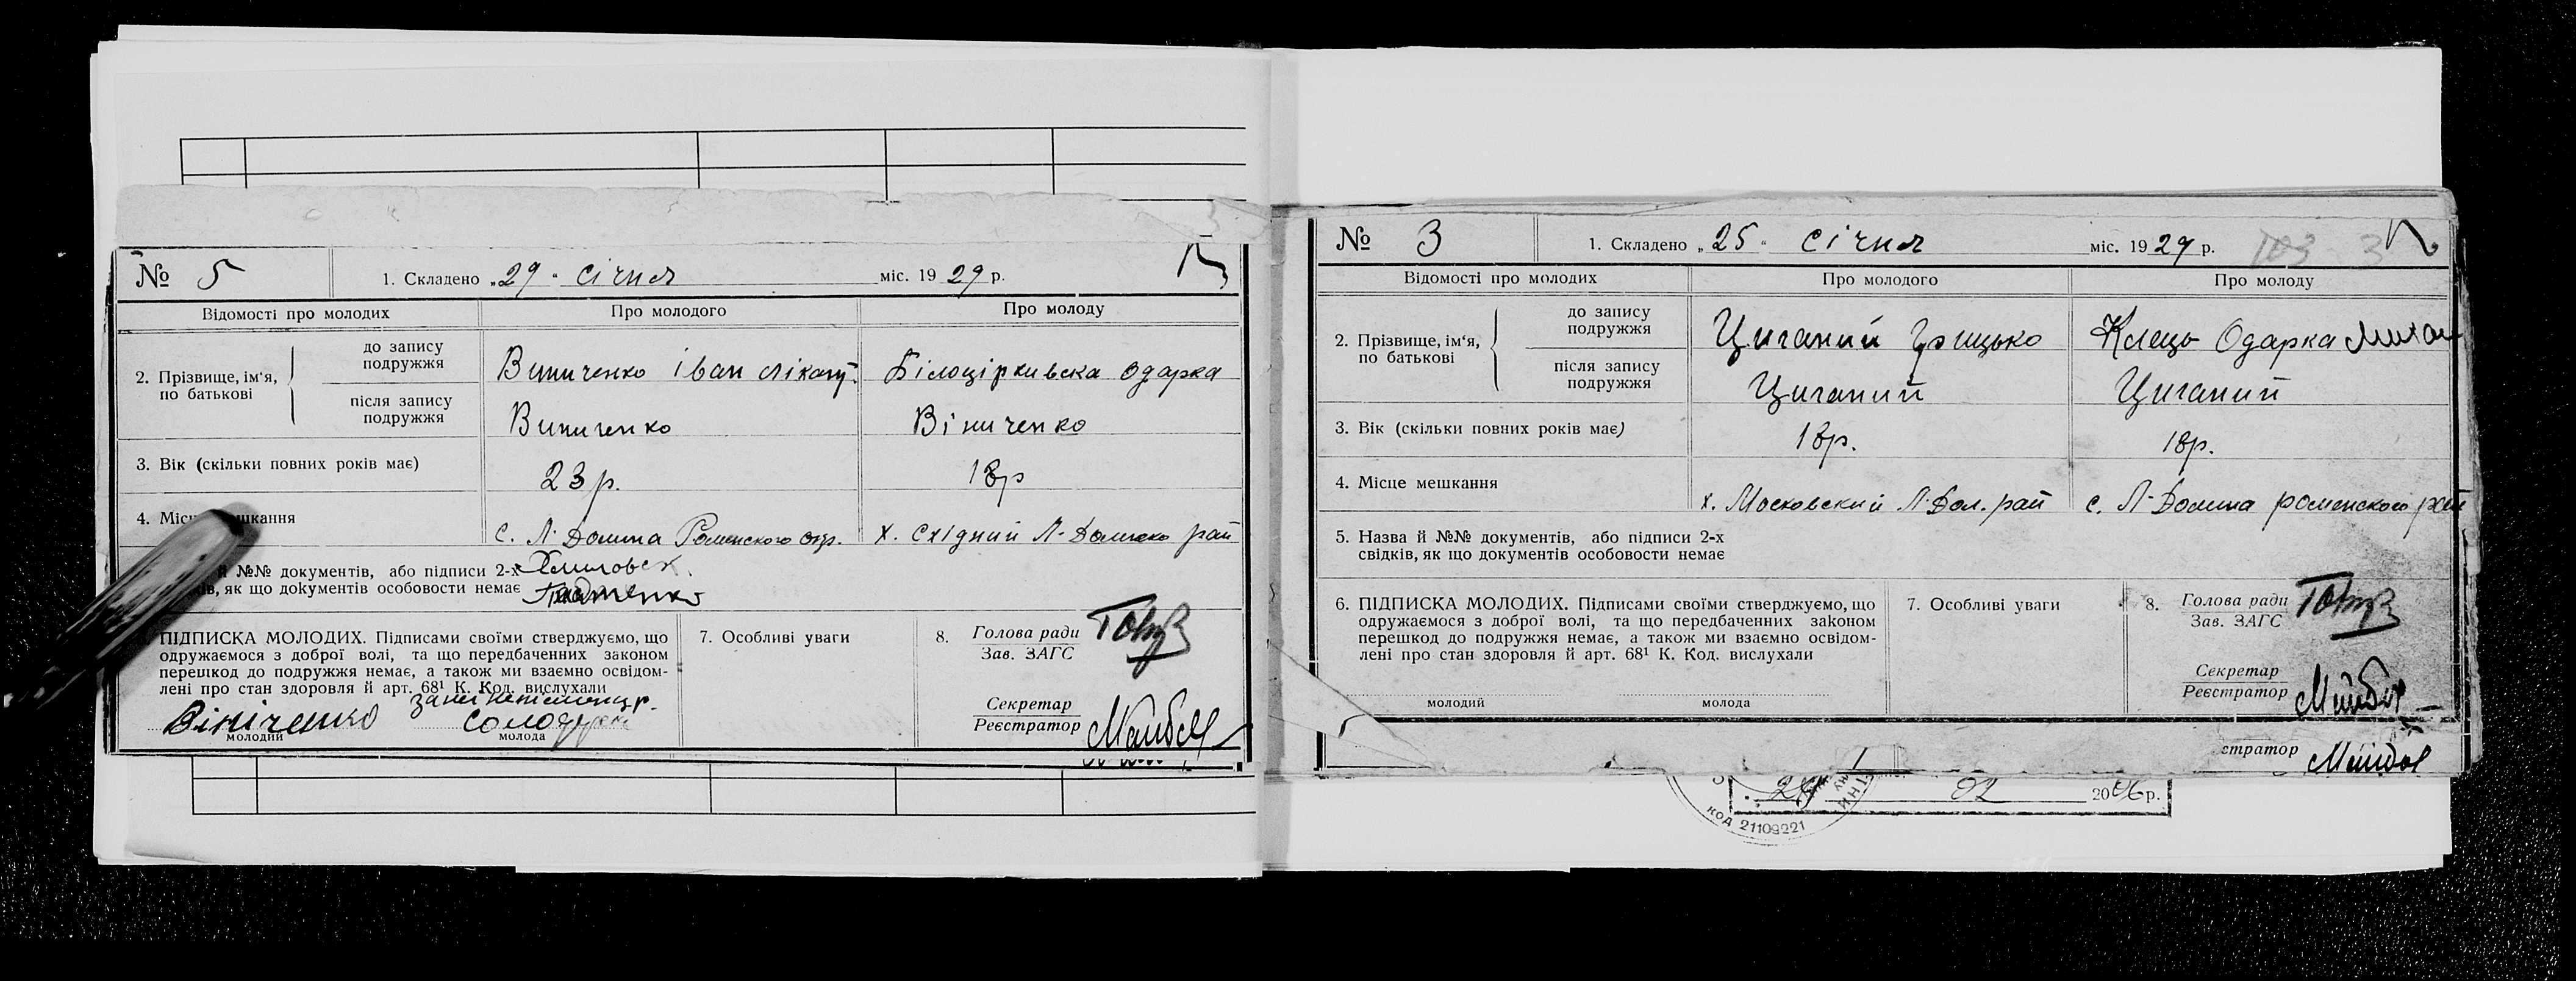 № 5
1. Складено „29" січня міс. 1929 р.
Відомості про молодих
Про молодого
Про молоду
2. Прізвище, ім‘я, по батькові
до запису подружжя
Виниченко іван
Білоцірківска Одарка
після запису подружжя
Виниченко
Вініченко
3. Вік (скільки повних років має)
23 р.
18р
4. Місце мешкання
с. Л. Долина Роменського окр.
х. Східний Л-Долинсько рай
й №№ документів, або підписи 2-х
свідків, як що документів особовости немає
ПІДПИСКА МОЛОДИХ. Підписами своїми стверджуємо, що
одружаємося з доброї волі, та що передбаченних законом
перешкод до подружжя немає, а також ми взаємно освідом-
лені про стан здоровля й арт. 68¹ К. Код. вислухали
Вініченко
молодий
молода
7. Особливі уваги
8. Голова ради
Зав. ЗАГС
Секретар
Реєстратор
№ 3
1. Складено „25" січня міс. 1929 р.
Відомості про молодих
Про молодого
Про молоду
2. Прізвище, ім‘я, по батькові
до запису подружжя
Циганий Грицько
Клець Одарка Михай
після запису подружжя
Циганий
Циганий
3. Вік (скільки повних років має)
18р.
18р.
4. Місце мешкання
х. Московский Л-Дол. рай
с. Л-Долина роменского рай
5. Назва й №№ документів, або підписи 2-х
свідків, як що документів особовости немає
6. ПІДПИСКА МОЛОДИХ. Підписами своїми стверджуємо, що
одружаємося з доброї волі, та що передбаченних законом
перешкод до подружжя немає, а також ми взаємно освідом-
лені про стан здоровля й арт. 68¹ К. Код. вислухали
молодий
молода
7. Особливі уваги
8. Голова ради
Зав. ЗАГС
Секретар
Реєстратор
стратор
02 2006р.
код 21109221